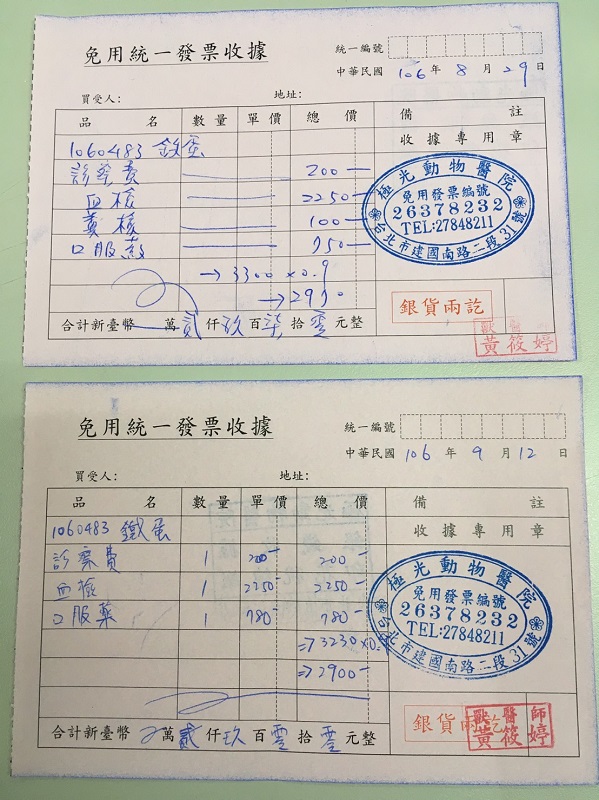 免用統一發票收據
統一編號
中華民國 106 年 8 月 29 日
買受人: 地址:
品名 數量 單價 總價 備註
收據專用章
1060483 鉄蛋
診察費 200-
血檢 2250-
糞檢 100-
口服藥 750-
→3300×0.9
→2970-
合計新臺幣 萬貳仟玖百柒拾零元整
極光動物醫院
免用發票編號
26378232
TEL:27848211
台北市建國南路二段31號
銀貨兩訖
獸醫師
黃筱婷
免用統一發票收據
統一編號
中華民國 106 年 9 月 12 日
買受人: 地址:
品名 數量 單價 總價 備註
收據專用章
1060483 鐵蛋
診察費 1 200- 200-
血檢 1 2250- 2250-
口服藥 1 780- 780-
⇒3230×0.
⇒2900-
合計新臺幣 萬貳仟玖百零拾零元整
極光動物醫院
免用發票編號
26378232
TEL:27848211
台北市建國南路二段31號
銀貨兩訖
獸醫師
黃筱婷